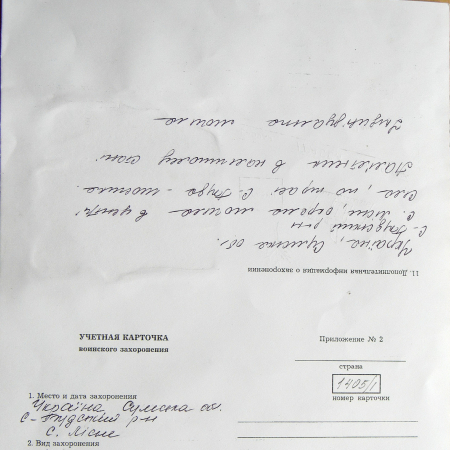 11. Дополнительная информация о захоронении
Україна, Сумська обл.
С-Будський р-н
с. Лісне, окрема могила в центрі
села, по трасі С-Буда -
Пам'ятник в належному стані.
Індивідуальна могила
УЧЕТНАЯ КАРТОЧКА
воинского захоронения
Приложение № 2
страна
1405/1
номер карточки
1. Место и дата захоронения
Україна Сумська обл.
С-Будский р-н
с. Лісне
2. Вид захоронения